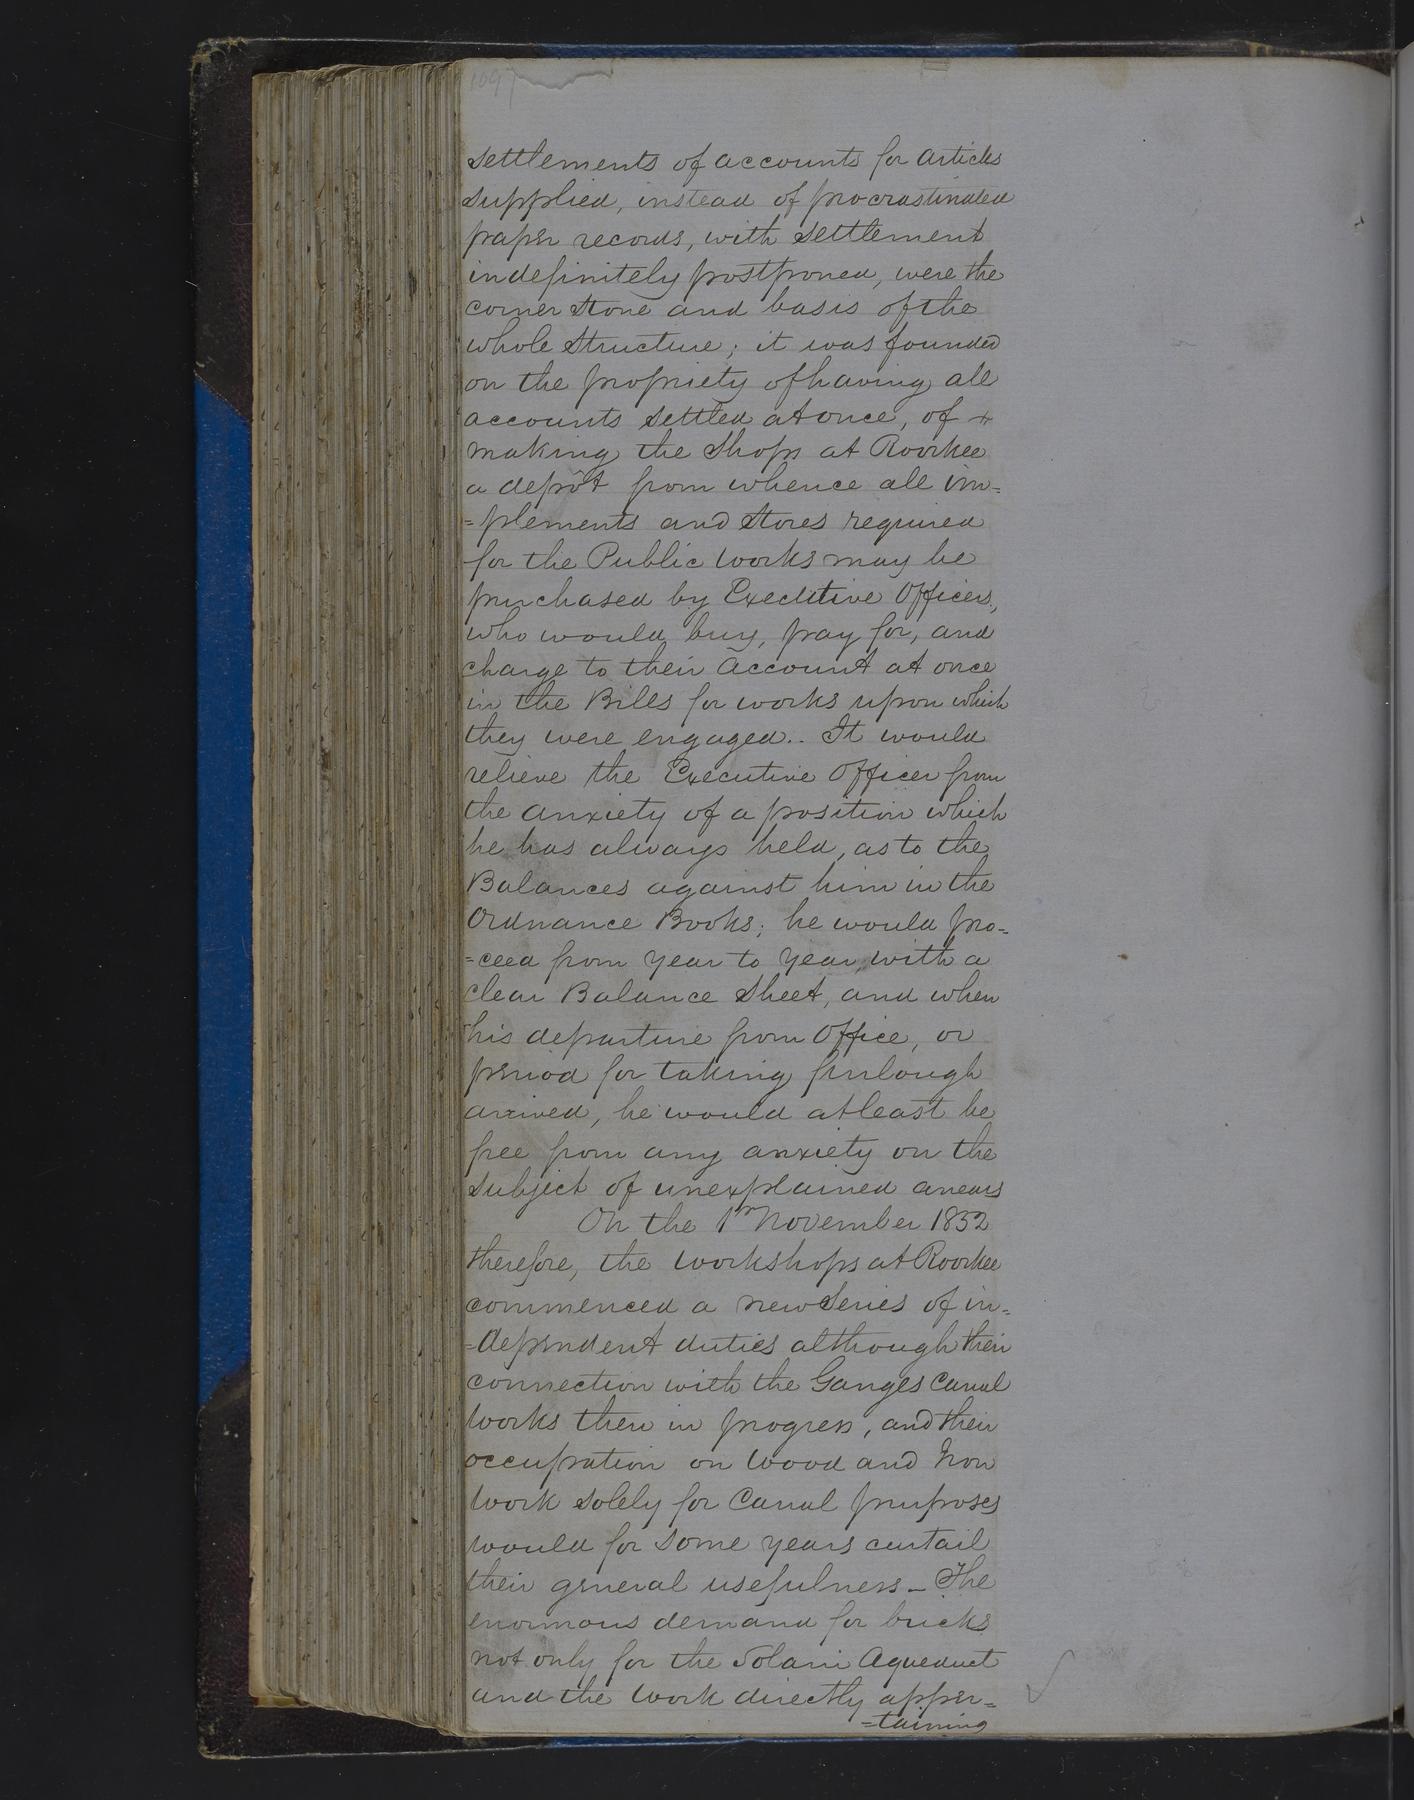 1097
settlements of accounts for articles
supplied, instead of procrastinated
paper records, with settlement
indefinitely postponed, were the
corner stone and basis of the
whole structure; it was founded
on the propriety of having all
accounts settled at once, of +
making the Shops at Roorkee
a depôt from whence all im=
=plements and Stores required
for the Public Works may be
purchased by Executive Officers,
who would buy, pay for, and
charge to their account at once
in the Bills for works upon which
they were engaged.. It would
relieve the Executive Officer from
the anxiety of a position which
he has always held, as to the
Balances against him in the
Ordnance Books; he would pro=
=ceed from year to year, with a
clear Balance Sheet, and when
his departure from Office, or
period for taking furlough
arrived, he would at least be
free from any anxiety on the
subject of unexplained arrears
On the 1st November 1852
therefore, the workshops at Roorkee
commenced a new Series of in=
=dependent duties although their
connection with the Ganges Canal
Works then in progress, and their
occupation on Wood and Iron
work solely for Canal purposes
would for some years curtail
their general usefulness_ The
enormous demand for bricks
not only for the Solani Aqueduct
and the work directly apper=
=taining